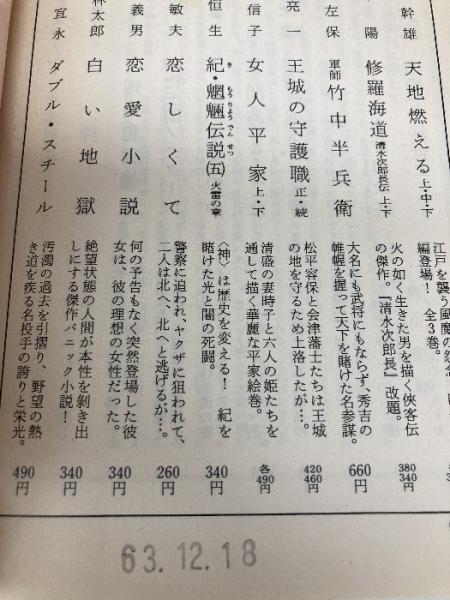 幹雄 天地燃える 上・中・下
江戸を襲う風魔の怨念
編登場! 全3巻。
陽 修羅海道 清水次郎長伝 上・下
火の如く生きた男を描く侠客伝
の傑作。『清水次郎長』改題。
380
340円
左保 軍師 竹中半兵衛
大名にも武将にもならず、秀吉の
帷幄を握って天下を賭けた名参謀。
660円
亮一 王城の守護職 正・続
松平容保と会津藩士たちは王城
の地を守るため上洛したが…。
420
460円
信子 女人平家 上・下
清盛の妻時子と六人の姫たちを
通して描く華麗な平家絵巻。
各490円
恒生 紀・魍魎伝説(五) 火雷の章
き もうりょうでんせつ
〈神〉は歴史を変える! 紀を
賭けた光と闇の死闘。
340円
敏夫 恋しくて
警察に追われ、ヤクザに狙われて、
二人は北へ、北へと逃げるが…。
260円
義男 恋愛小説
何の予告もなく突然登場した彼
女は、彼の理想の女性だった。
340円
林太郎 白い地獄
絶望状態の人間が本性を剝き出
しにする傑作パニック小説!
340円
宜永 ダブル・スチール
汚濁の過去を引摺り、野望の熱
き道を疾る名投手の誇りと栄光。
490円
63.12.18